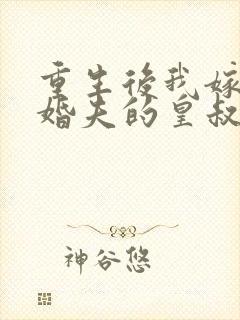 重生後我嫁
婚夫的皇叔
神谷悠